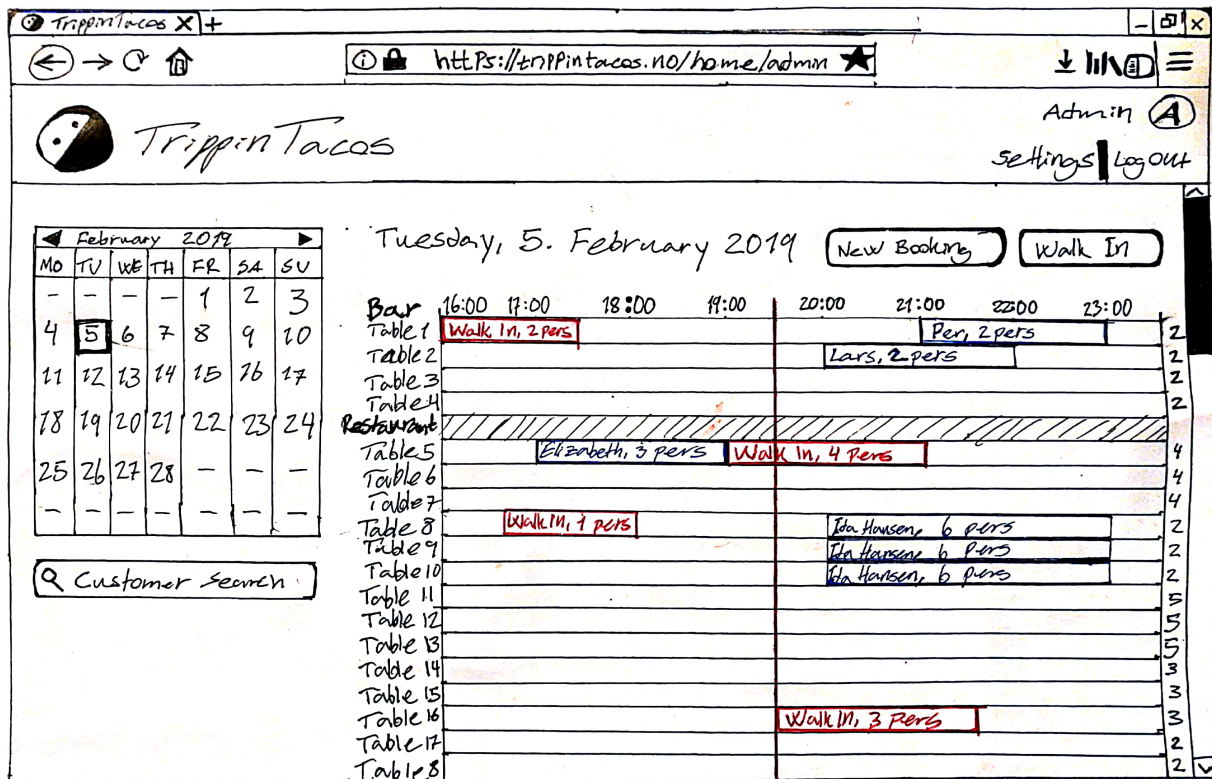 TrippinTacos X +
https://trippintacos.no/home/admin
Admin A
TrippinTacos
Settings Log Out
February 2019
Tuesday, 5. February 2019 New Booking Walk In
MO TU WE TH FR SA SU
- - - - 1 2 3
4 5 6 7 8 9 10
11 12 13 14 15 16 17
18 19 20 21 22 23 24
25 26 27 28 - - -
- - - - - - -
Customer Search
Bar 16:00 17:00 18:00 19:00 20:00 21:00 22:00 23:00
Table 1 Walk In, 2 pers Per, 2 pers 2
Table 2 Lars, 2 pers 2
Table 3 2
Table 4 2
Restaurant
Table 5 Elizabeth, 3 pers Walk In, 4 pers 4
Table 6 4
Table 7 4
Table 8 Walk In, 1 pers Ida Hansen, 6 pers 2
Table 9 Ida Hansen, 6 pers 2
Table 10 Ida Hansen, 6 pers 2
Table 11 5
Table 12 5
Table 13 5
Table 14 3
Table 15 3
Table 16 Walk In, 3 Pers 3
Table 17 2
Table 8 2